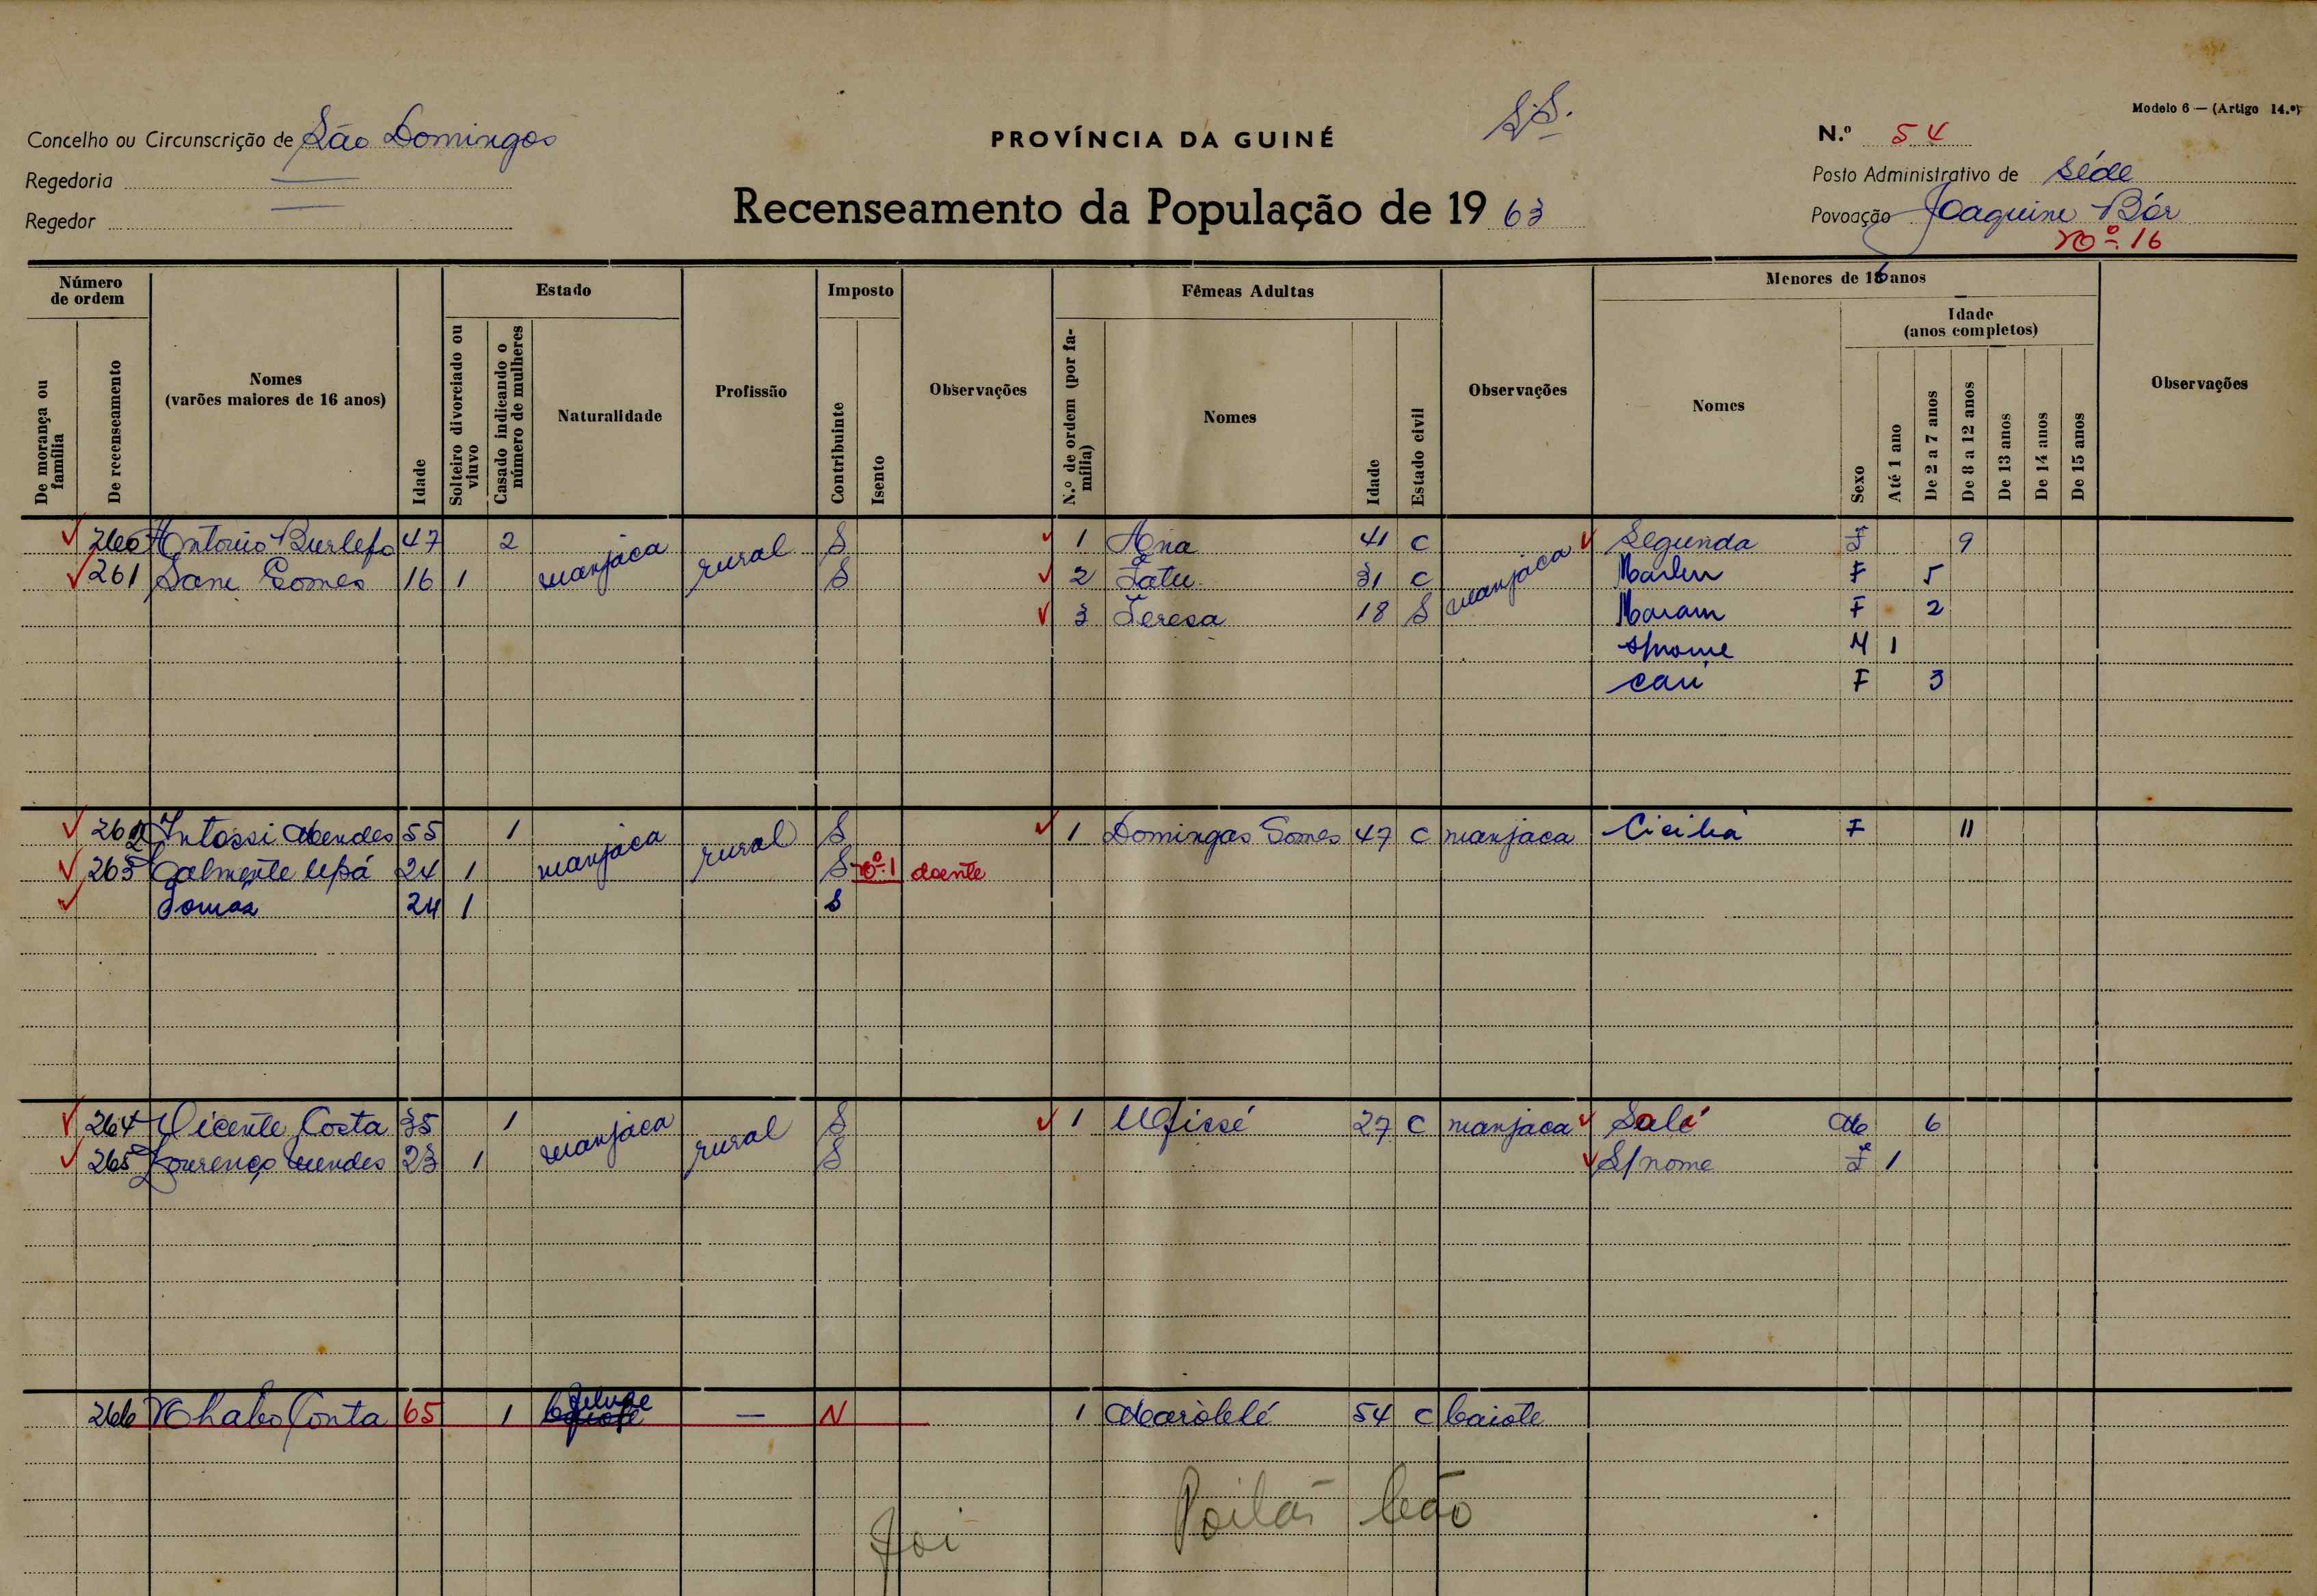 Modelo 6 — (Artigo 14.º)
Concelho ou Circunscrição de São Domingos
PROVÍNCIA DA GUINÉ
S.S.
N.º 54
Regedoria —
Posto Administrativo de Séde
Regedor —
Recenseamento da População de 1963
Povoação Joaquim Bór
Nº. 16
Número de ordem
Estado
Imposto
Fêmeas Adultas
Menores de 16 anos
Idade (anos completos)
De morança ou família
De recenseamento
Nomes (varões maiores de 16 anos)
Idade
Solteiro divorciado ou viuvo
Casado indicando o número de mulheres
Naturalidade
Profissão
Contribuinte
Isento
Observações
N.º de ordem (por família)
Nomes
Idade
Estado civil
Observações
Nomes
Sexo
Até 1 ano
De 2 a 7 anos
De 8 a 12 anos
De 13 anos
De 14 anos
De 15 anos
Observações
260 Antonio Burlefo 47 2 manjaca rural S 1 Ana 41 C manjaca Segunda F 9
261 Sane Gomes 16 1 S 2 Fatu 31 C Marlin F 5
3 Teresa 18 S Maram F 2
S/nome M 1
Cau F 3
262 Intossi Mendes 55 1 manjaca rural S 1 Domingas Gomes 47 C manjaca Cicilia F 11
263 Calmente Upá 24 1 S Nº.1 doente
Tomas 24 1 S
264 Vicente Costa 35 1 manjaca rural S 1 Ufissé 27 C manjaca Salé M 6
265 Lourenço Mendes 23 1 S S/nome F 1
266 Nhabo Conta 65 1 felupe — N 1 Marobelé 54 C baiote
Foi
Poilão Leão